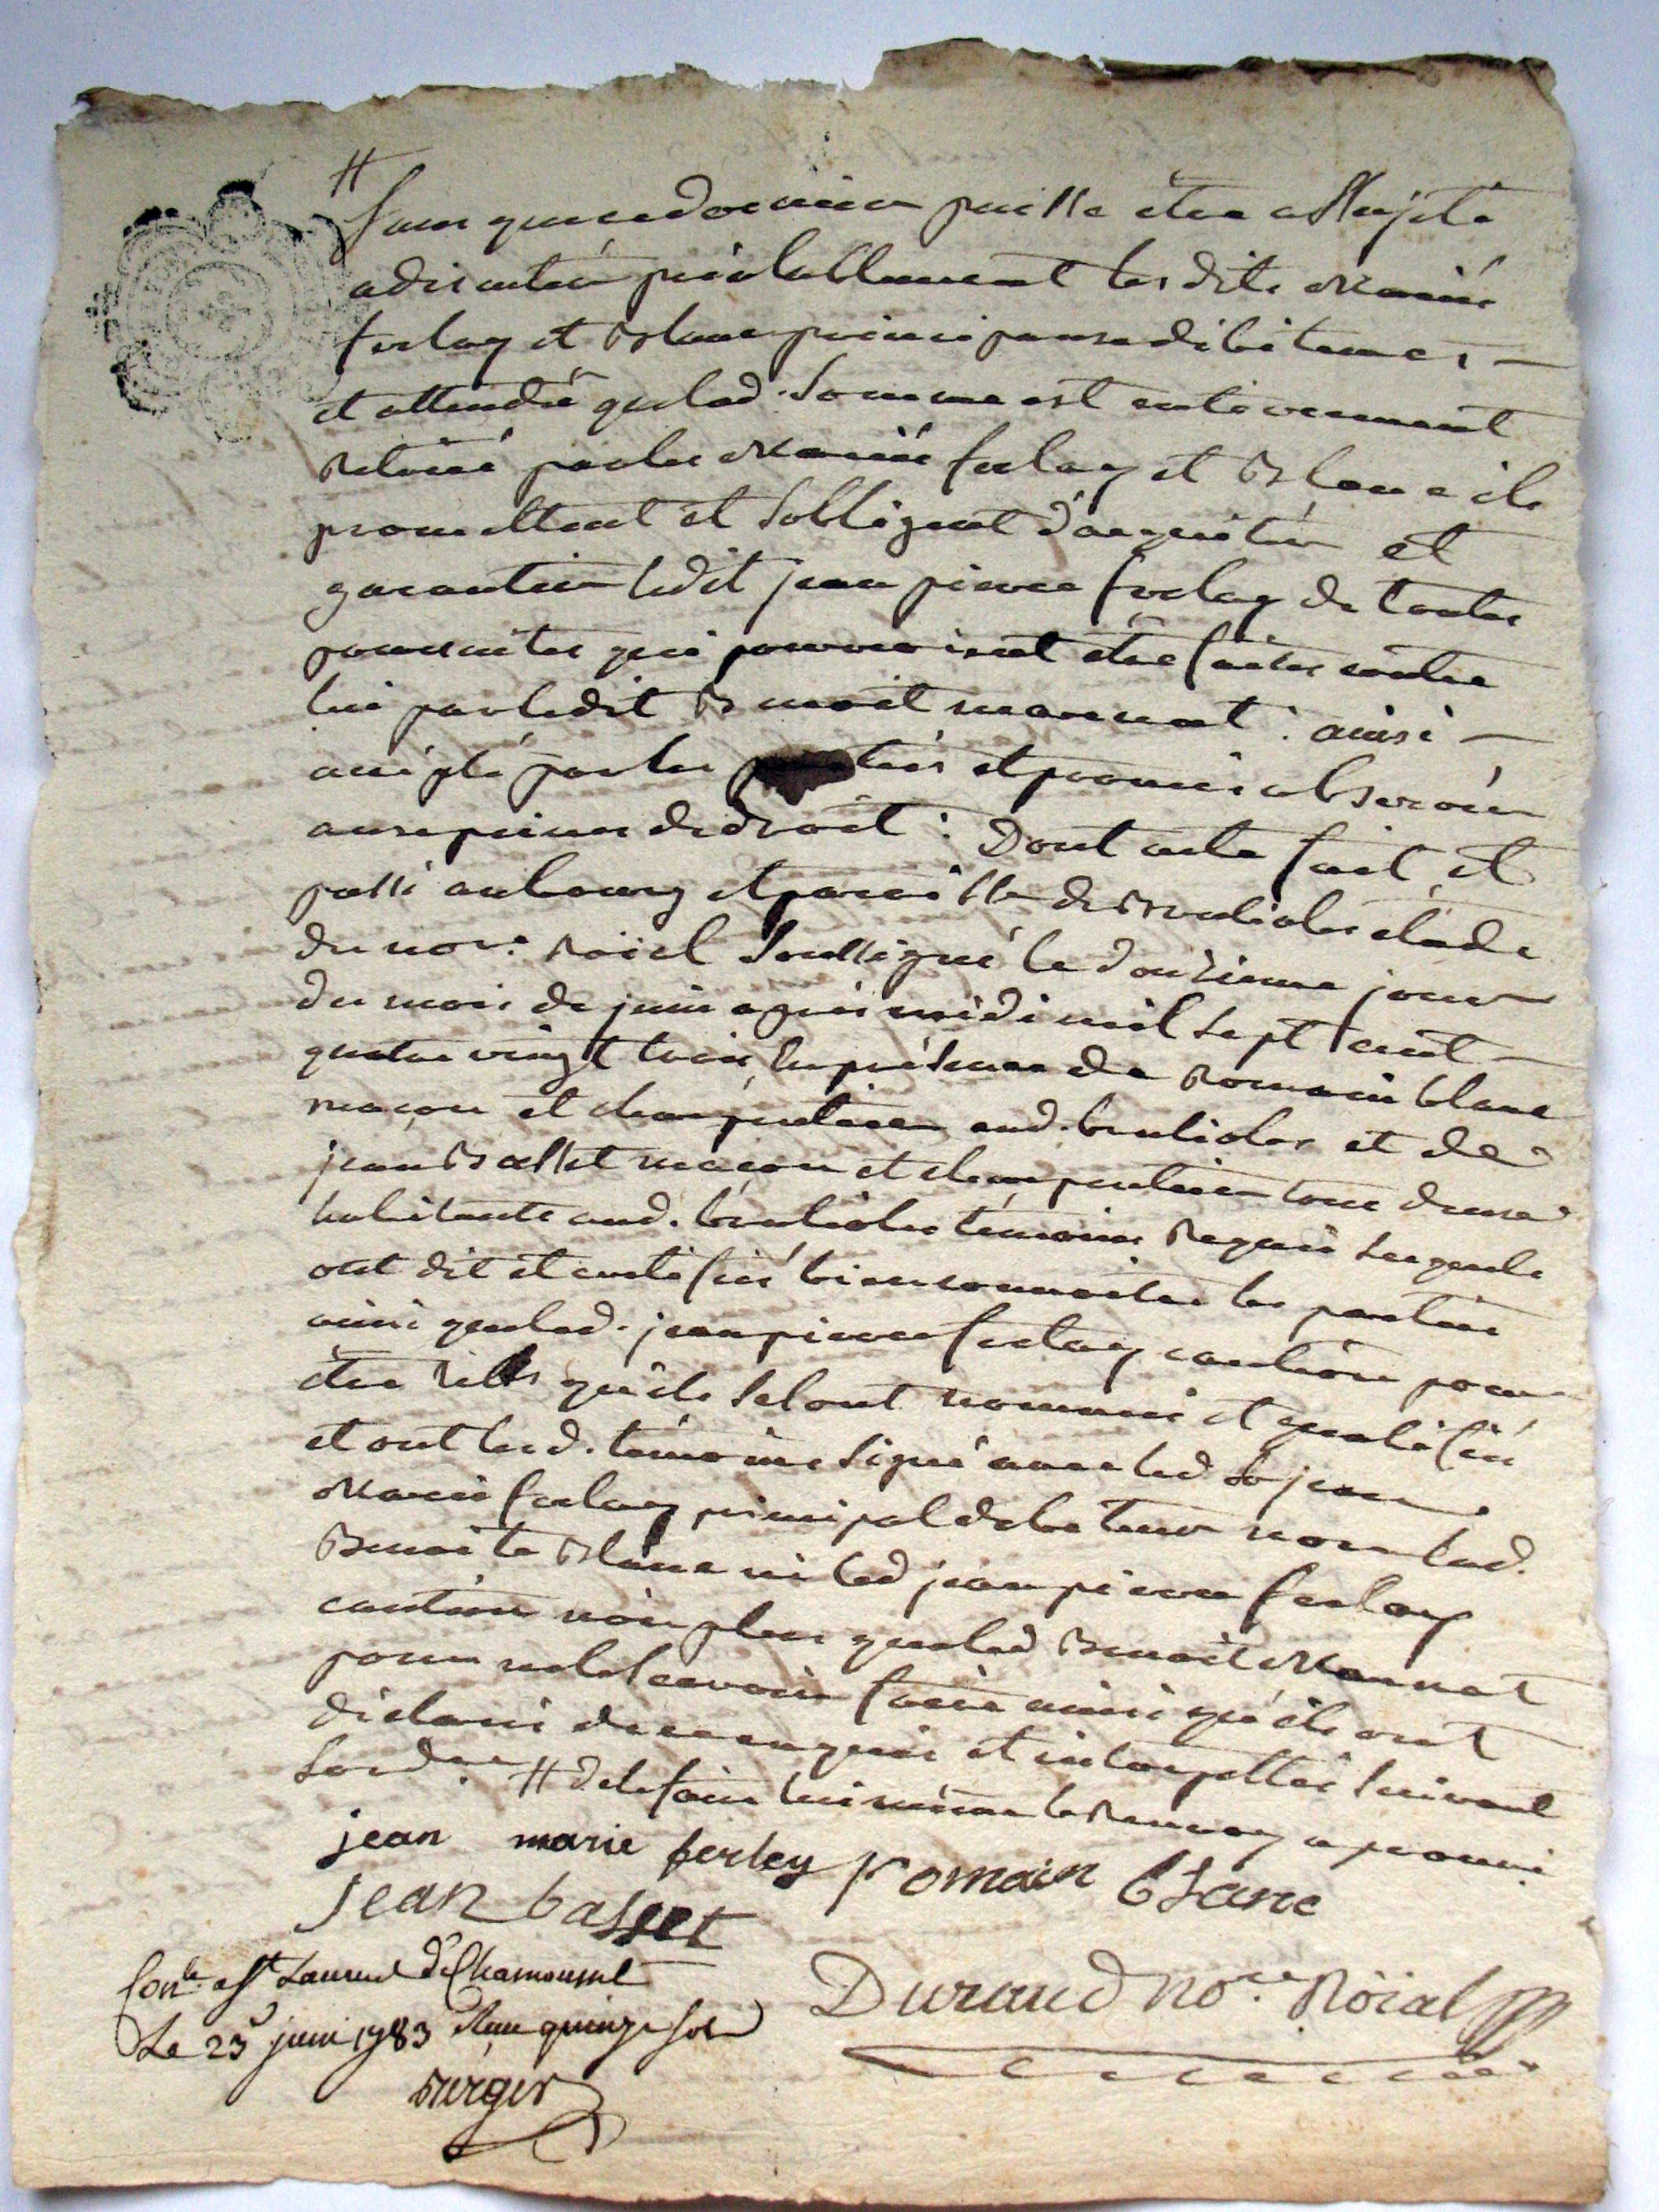 #
sans que ce dernier puisse etre assujeti
a discuter préalablement lesdits Marié
ferlay et Blanc principaux débiteurs –
et attendu que lad. Somme est entierement
Retiré par les Marié ferlay et Blanc ils
promettent et Sobligent d'acquiter et
garantir ledit jean pierre ferlay de toutes
poursuites qui pourroient etre faites contre
lui par ledit Benoit marmat : ainsi –
accepté par les parties et promis observer
aux peines de droit : Dont acte fait et
passé au bourg et paroisse de Brulioles étude
du no.re Roiel Soussigné le douzieme jour
du mois de juin apres midi mil sept cent –
quatre vingt trois, En présence de Romain blanc
maçon et charpentier aud. brulioles et de
jean Basset maçon et charpentier tous deux
habitants aud. brulioles témoins Requis Lesquels
ont dit et certifié bien connoitre les parties
ainsi que led. jean pierre ferlay caution pour
etre tels qu'ils Se sont nommés et qualifiés
et ont lesd. témoins Signé avec led Sr jean
Marie ferlay principal debiteur non lad.
Benoite Blanc ni led jean pierre ferlay
caution non plus que led Benoit Marmat
pour ne le Scavoir faire ainsi qu'ils ont
déclaré de ce enquis et interpellés Suivant
Lord.ce # de le faire lui même le Renvoy aprouvé
jean marie ferley romain blanc
jean basset
Con.le a St Laurend de Chamousset
Le 23 juin 1783 Reçu quinze Sols
Durand no.re Róial
Berger